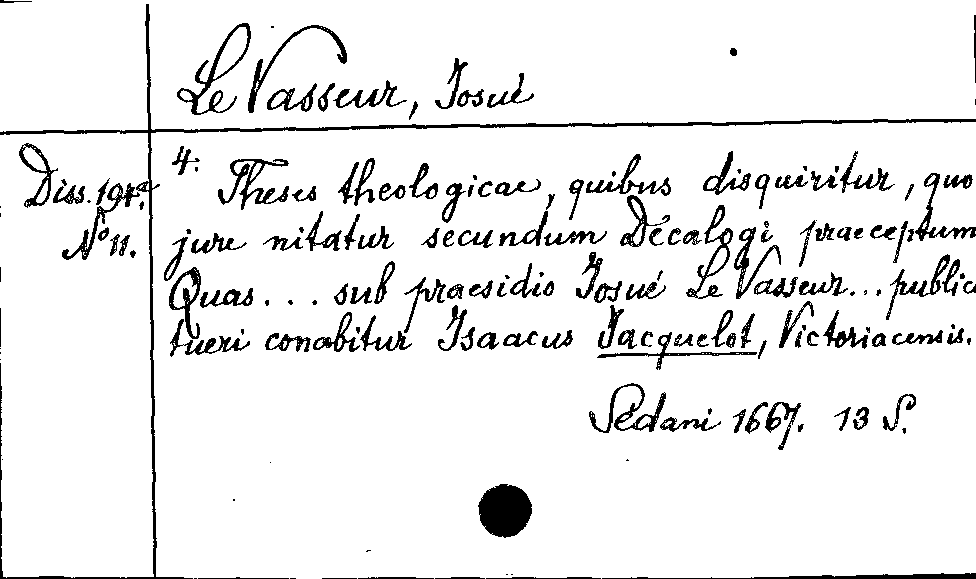 Le Vasseur, Josué
4.
Diss. 194.a
No 11.
Theses theologicae, quibus disquiritur, quo
jure nitatur secundum Decalogi praeceptum
Quas... sub praesidio Josué Le Vasseur... public
tueri conabitur Isaacus Jacquelot, Victoriacensis.
Sedani 1667. 13 S.